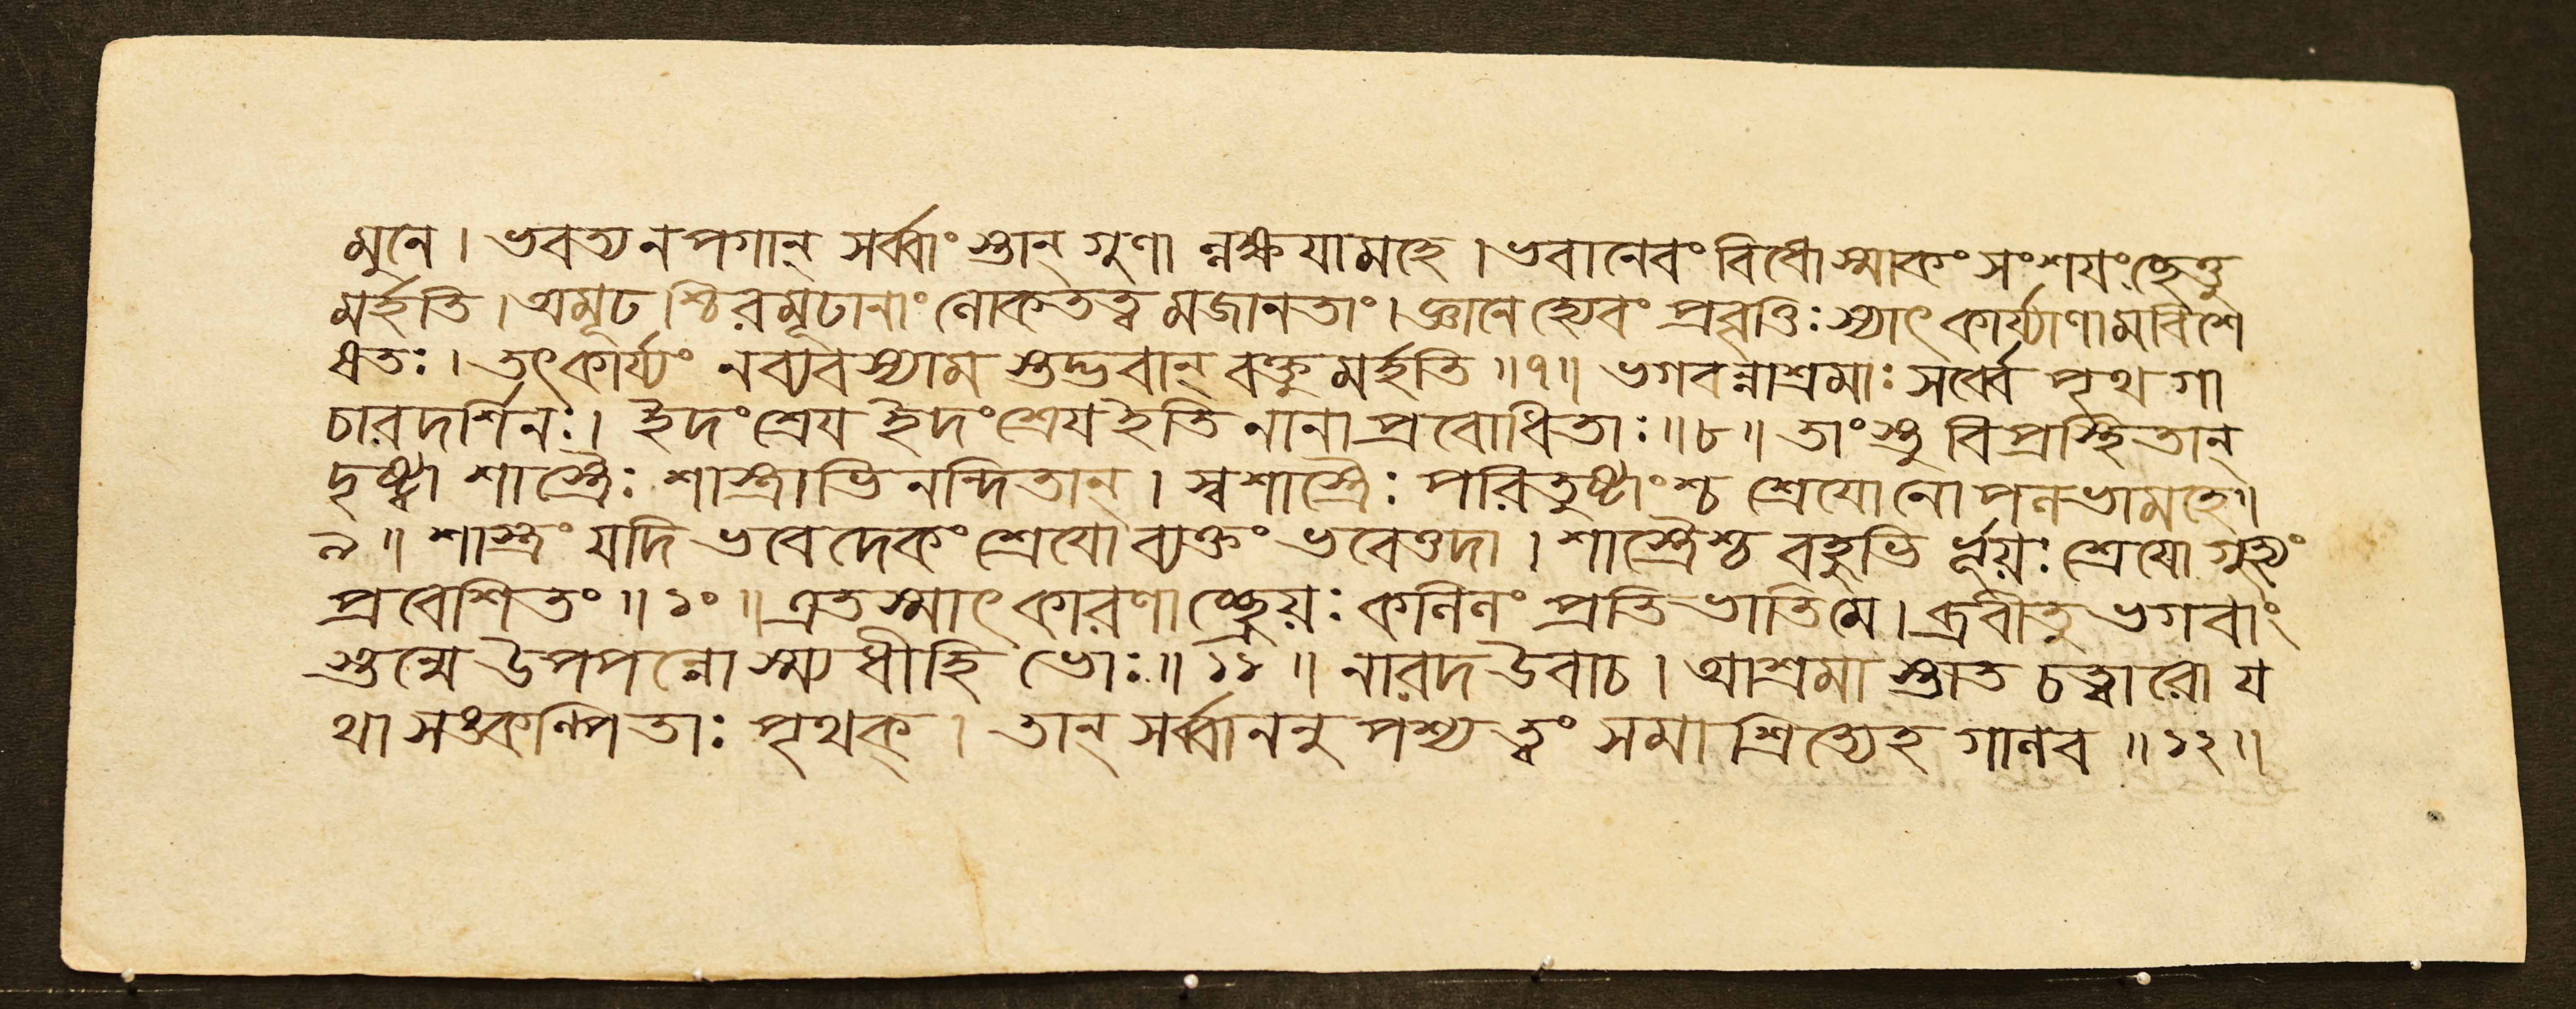 মুনে । ভবত্যনপগান্ সর্ব্বাংস্তান্ গুণা ন্লক্ষযামহে । ভবানেবং বিধোস্মাকং সংশযংচ্ছেত্তু
মর্হতি । অমূঢ শ্চিরমূঢানাং লোকতত্ব মজানতাং । জ্ঞানে হ্যেবং প্রবৃত্তিঃ স্যাৎ কার্য্যাণামবিশে
ষতঃ । তৎকার্য্যং নব্যবস্যাম স্তদ্ভবান্ বক্তু মর্হতি ॥ ৭ ॥ ভগবন্নাশ্রমাঃ সর্ব্বে পৃথ গা
চারদর্শিনঃ । ইদং শ্রেয ইদং শ্রেয ইতি নানা প্রবোধিতাঃ ॥ ৮ ॥ তাংস্তু বিপ্রস্থিতান্
দৃষ্ট্বা শাস্ত্রৈঃ শাস্ত্রাভিনন্দিতান্ । স্বশাস্ত্রৈঃ পরিতুষ্টাংশ্চ শ্রেযো নোপলভামহে ॥
৯ ॥ শাস্ত্রং যদি ভবেদেকং শ্রেযো ব্যক্তং ভবেত্তদা । শাস্ত্রৈশ্চ বহুভি র্ভূয়ঃ শ্রেযো গুহ্যং
প্রবেশিতং ॥ ১০ ॥ এতস্মাৎ কারণাচ্ছ্রেয়ঃ কলিলং প্রতিভাতি মে । ব্রবীতু ভগবাং
স্তন্মে উপপন্নো স্ম্যধীহি ভোঃ ॥ ১১ ॥ নারদ উবাচ । আশ্রমা স্তাত চত্বারো য
থা সঙ্কল্পিতাঃ পৃথক্ । তান্ সর্ব্বাননু পশ্য ত্বং সমাশ্রিত্যেহ গালব ॥ ১২ ॥